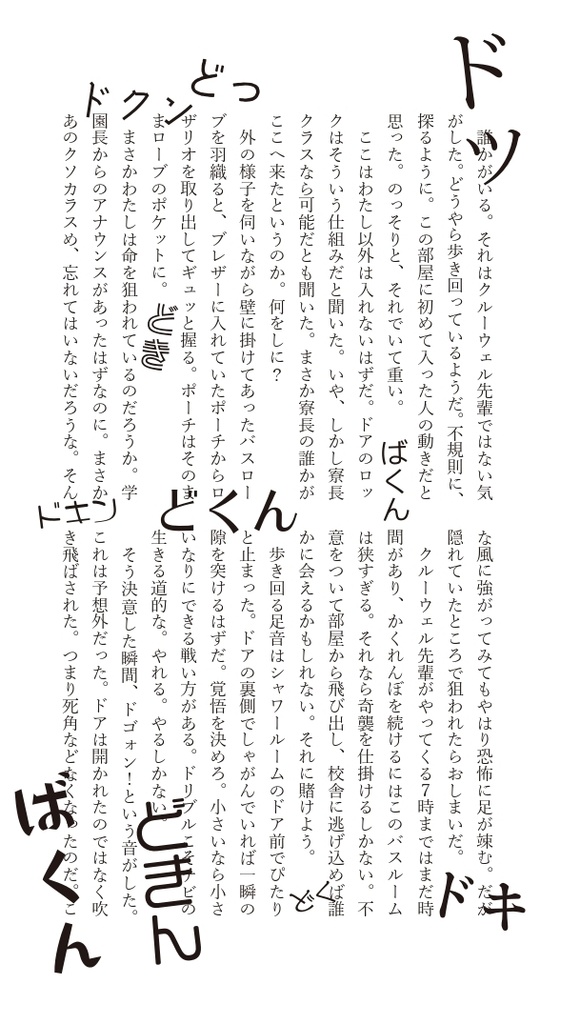 誰かがいる。それはクルーウェル先輩ではない気
がした。どうやら歩き回っているようだ。不規則に、
探るように。この部屋に初めて入った人の動きだと
思った。のっそりと、それでいて重い。
ここはわたし以外は入れないはずだ。ドアのロッ
クはそういう仕組みだと聞いた。いや、しかし寮長
クラスなら可能だとも聞いた。まさか寮長の誰かが
ここへ来たというのか。何をしに？
外の様子を伺いながら壁に掛けてあったバスロー
ブを羽織ると、ブレザーに入れていたポーチからロ
ザリオを取り出してギュッと握る。ポーチはそのま
まローブのポケットに。
まさかわたしは命を狙われているのだろうか。学
園長からのアナウンスがあったはずなのに。まさか
あのクソカラスめ、忘れてはいないだろうな。そん
な風に強がってみてもやはり恐怖に足が竦む。だが
隠れていたところで狙われたらおしまいだ。
クルーウェル先輩がやってくる７時まではまだ時
間があり、かくれんぼを続けるにはこのバスルーム
は狭すぎる。それなら奇襲を仕掛けるしかない。不
意をついて部屋から飛び出し、校舎に逃げ込めば誰
かに会えるかもしれない。それに賭けよう。
歩き回る足音はシャワールームのドア前でぴたり
と止まった。ドアの裏側でしゃがんでいれば一瞬の
隙を突けるはずだ。覚悟を決めろ。小さいなら小さ
いなりにできる戦い方がある。ドリブルこそチビの
生きる道的な。やれる。やるしかない。
そう決意した瞬間、ドゴォン！という音がした。
これは予想外だった。ドアは開かれたのではなく吹
き飛ばされた。つまり死角などなくなったのだ。こ
ドッ
どっ
ドクン
どき
ばくん
どくん
ドキン
ドキ
どく
どきん
ばくん